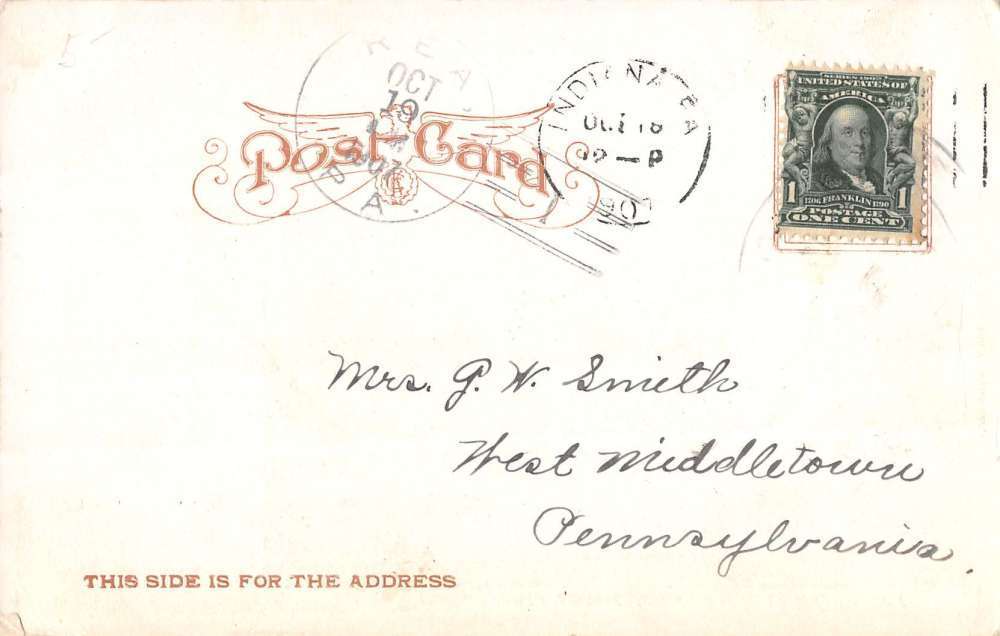 REA
OCT
19
PA.
Post Card
INDIANA PA
OCT 18
12-P
190
SERIES 1902
UNITED STATES OF
AMERICA
1 1
1706 FRANKLIN 1790
POSTAGE
ONE CENT
Mrs. G. W. Smith
West Middletown
Pennsylvania.
THIS SIDE IS FOR THE ADDRESS